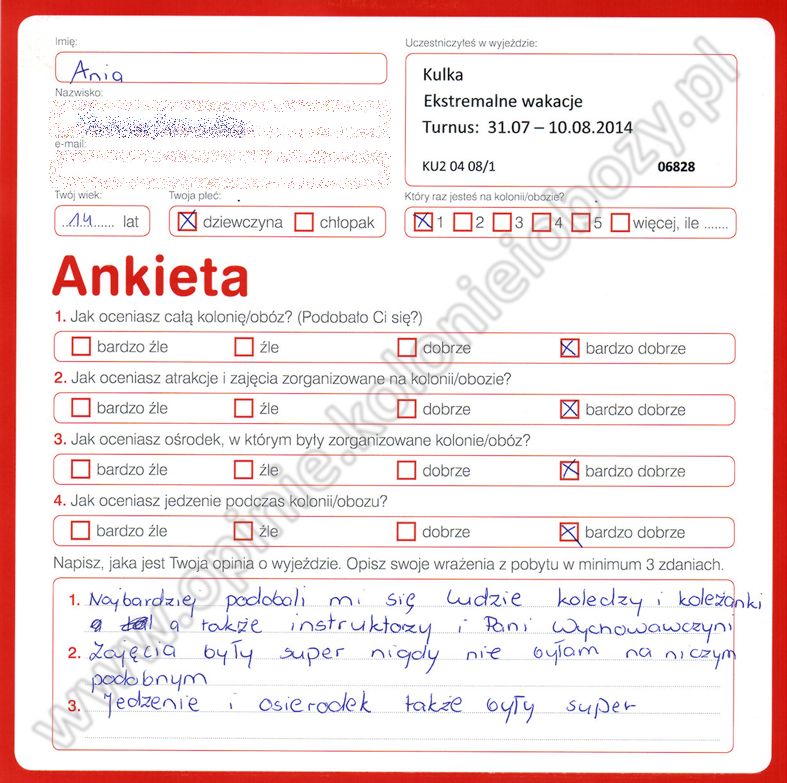 Imię:
Uczestniczyłeś w wyjeździe:
Ania
Kulka
Ekstremalne wakacje
Turnus: 31.07 – 10.08.2014
KU2 04 08/1 06828
Nazwisko:
e-mail:
Twój wiek:
Twoja płeć:
Który raz jesteś na kolonii/obozie?
14 lat
dziewczyna chłopak
1 2 3 4 5 więcej, ile .......
Ankieta
1. Jak oceniasz całą kolonię/obóz? (Podobało Ci się?)
bardzo źle źle dobrze bardzo dobrze
2. Jak oceniasz atrakcje i zajęcia zorganizowane na kolonii/obozie?
bardzo źle źle dobrze bardzo dobrze
3. Jak oceniasz ośrodek, w którym były zorganizowane kolonie/obóz?
bardzo źle źle dobrze bardzo dobrze
4. Jak oceniasz jedzenie podczas kolonii/obozu?
bardzo źle źle dobrze bardzo dobrze
Napisz, jaka jest Twoja opinia o wyjeździe. Opisz swoje wrażenia z pobytu w minimum 3 zdaniach.
1. Najbardziej podobali mi się ludzie koledzy i koleżanki
a także instruktorzy i Pani Wychowawczyni
2. Zajęcia były super nigdy nie byłam na niczym
podobnym
3. Jedzenie i osierodek także były super
www.opinie.kolonieiobozy.pl